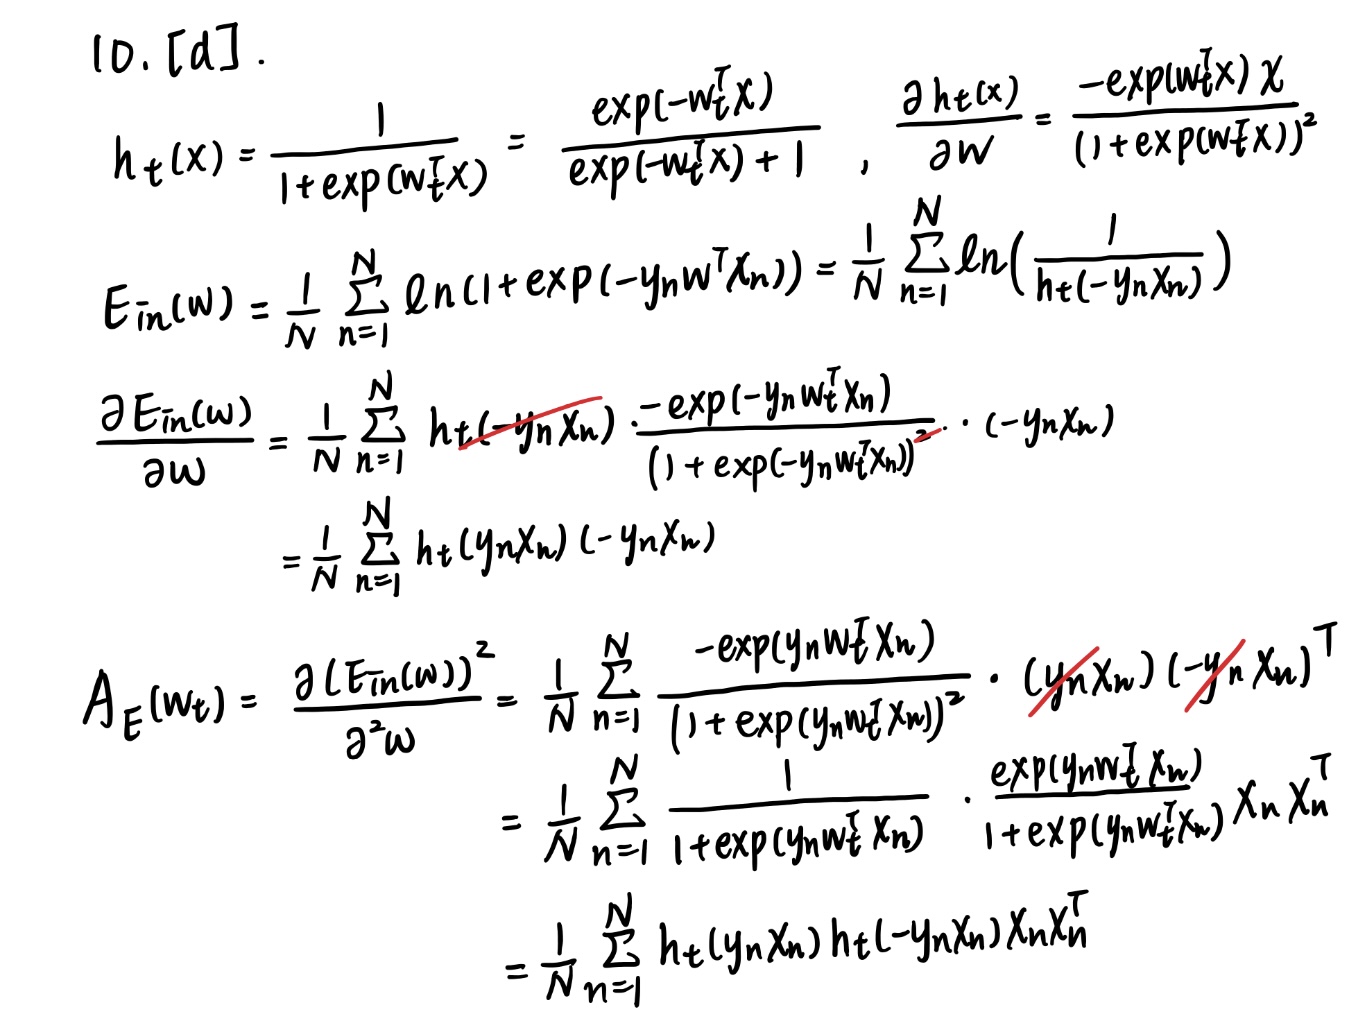 10. [d].
h_t(x) = \frac{1}{1+exp(w_t^T x)} = \frac{exp(-w_t^T x)}{exp(-w_t^T x)+1} , \frac{∂h_t(x)}{∂w} = \frac{-exp(w_t^T x) x}{(1+exp(w_t^T x))^2}
E_{in}(w) = \frac{1}{N} \sum_{n=1}^{N} ln(1+exp(-y_n w^T x_n)) = \frac{1}{N} \sum_{n=1}^{N} ln(\frac{1}{h_t(-y_n x_n)})
\frac{∂E_{in}(w)}{∂w} = \frac{1}{N} \sum_{n=1}^{N} h_t(-y_n x_n) · \frac{-exp(-y_n w_t^T x_n)}{(1+exp(-y_n w_t^T x_n))^2} · · (-y_n x_n)
= \frac{1}{N} \sum_{n=1}^{N} h_t(y_n x_n) (-y_n x_n)
A_E(w_t) = \frac{∂(E_{in}(w))^2}{∂^2 w} = \frac{1}{N} \sum_{n=1}^{N} \frac{-exp(y_n w_t^T x_n)}{(1+exp(y_n w_t^T x_n))^2} · (y_n x_n) (-y_n x_n)^T
= \frac{1}{N} \sum_{n=1}^{N} \frac{1}{1+exp(y_n w_t^T x_n)} · \frac{exp(y_n w_t^T x_n)}{1+exp(y_n w_t^T x_n)} x_n x_n^T
= \frac{1}{N} \sum_{n=1}^{N} h_t(y_n x_n) h_t(-y_n x_n) x_n x_n^T